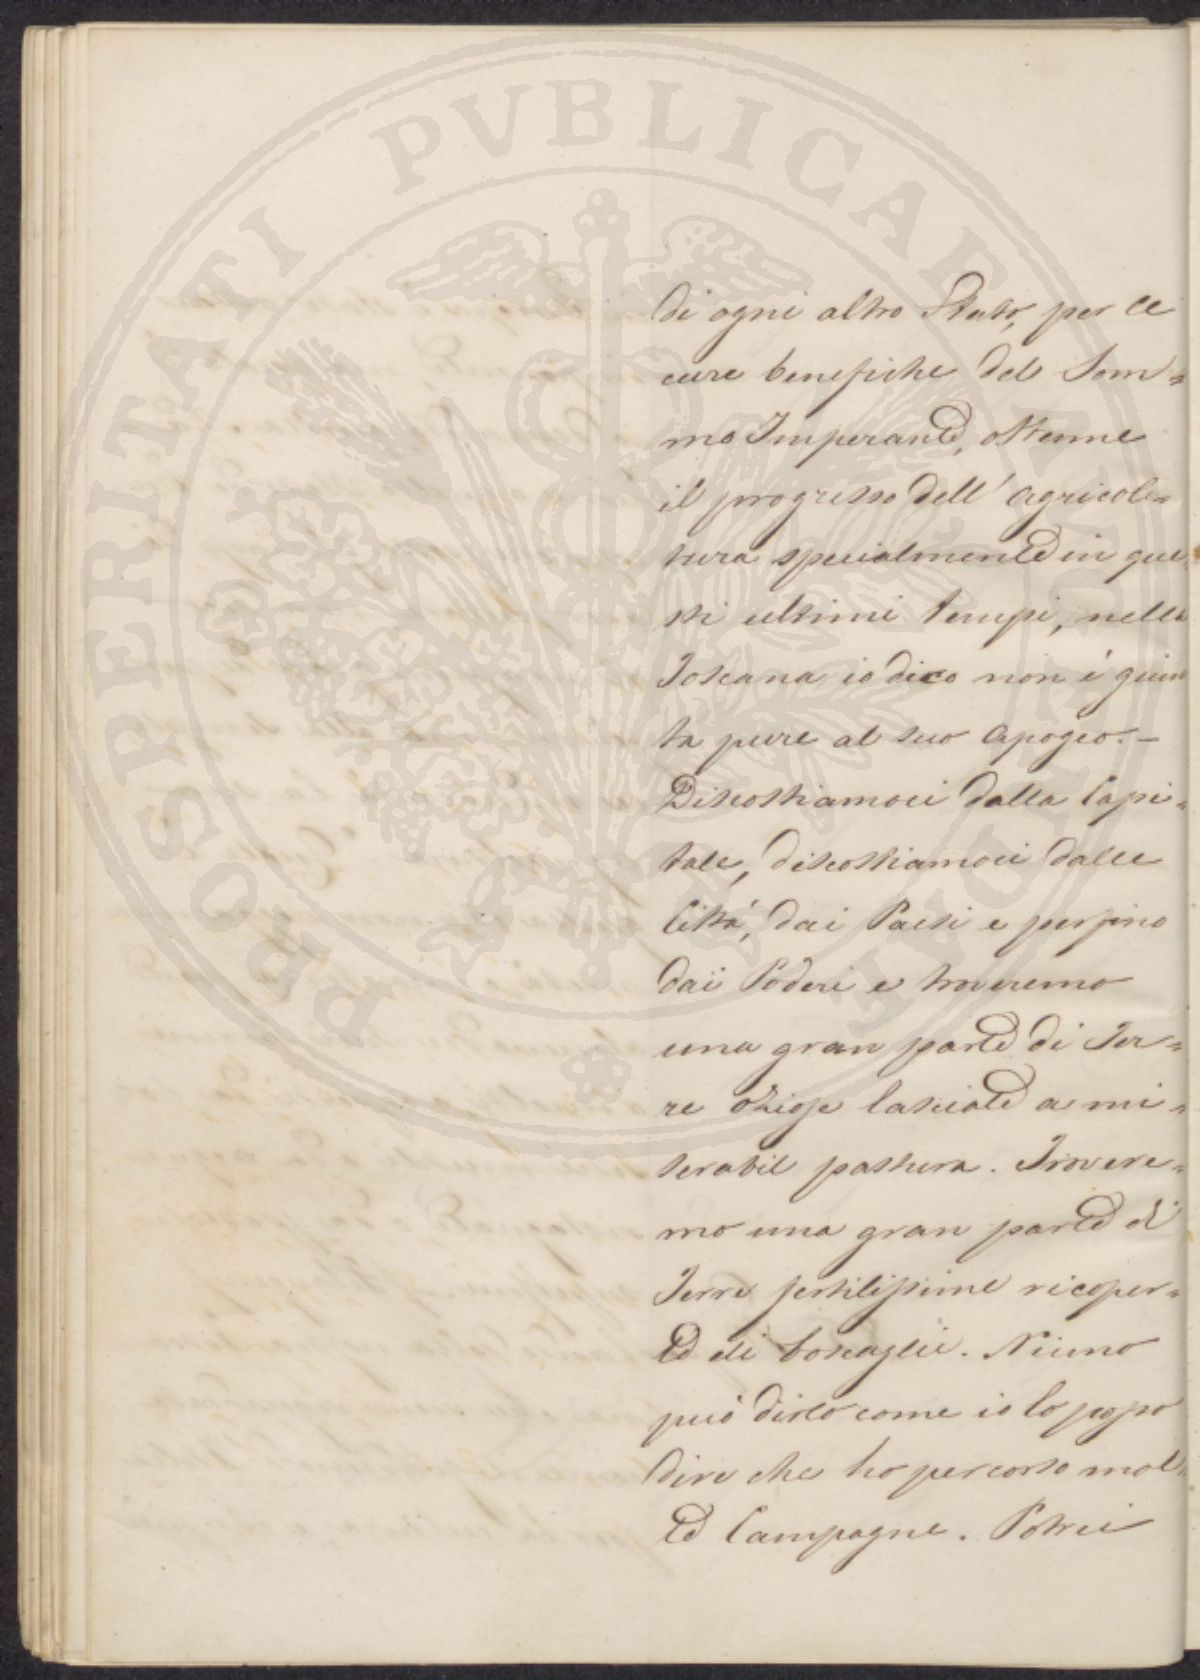 PROSPERITATI PVBLICAE
di ogni altro Stato, per le
cure benefiche del Som=
mo Imperante, ottenne
il progresso dell' agricol=
tura specialmente in que
sti ultimi tempi, nella
Toscana io dico non è giun
ta pure al suo apogeo. –
Discostiamoci dalla Capi=
tale, discostiamoci dalle
Città, dai Paesi e perfino
dai Poderi e troveremo
una gran parte di Ter=
re oziose lasciate a mi=
serabil pastura. Trovere=
mo una gran parte di
Terre fertilissime ricoper=
te di boscaglie. Niuno
può dirlo come io lo posso
dire che ho percorso mol=
te Campagne. Potrei